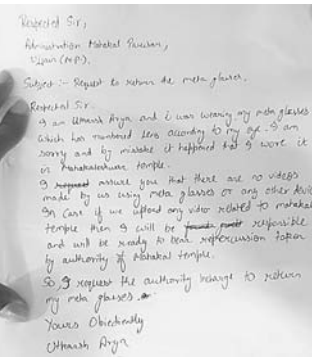 Respected Sir,
Administration Mahakal Parisar,
Ujjain (M.P.).
Subject :- Request to return the meta glasses.
Respected Sir.
I am Utkarsh Arya and i was wearing my meta glasses
which has numbered lens according to my eye. I am
sorry and by mistake it happened that I wore it
in Mahakaleshwar temple.
I request assure you that there are no videos
made by us using meta glasses or any other device
In Case if we upload any video related to mahakal
temple then I will be responsible
and will be ready to bear repercussion taken
by authority of Mahakal temple.
So, I request the authority to return
my meta glasses.
Yours Obediently
Utkarsh Arya